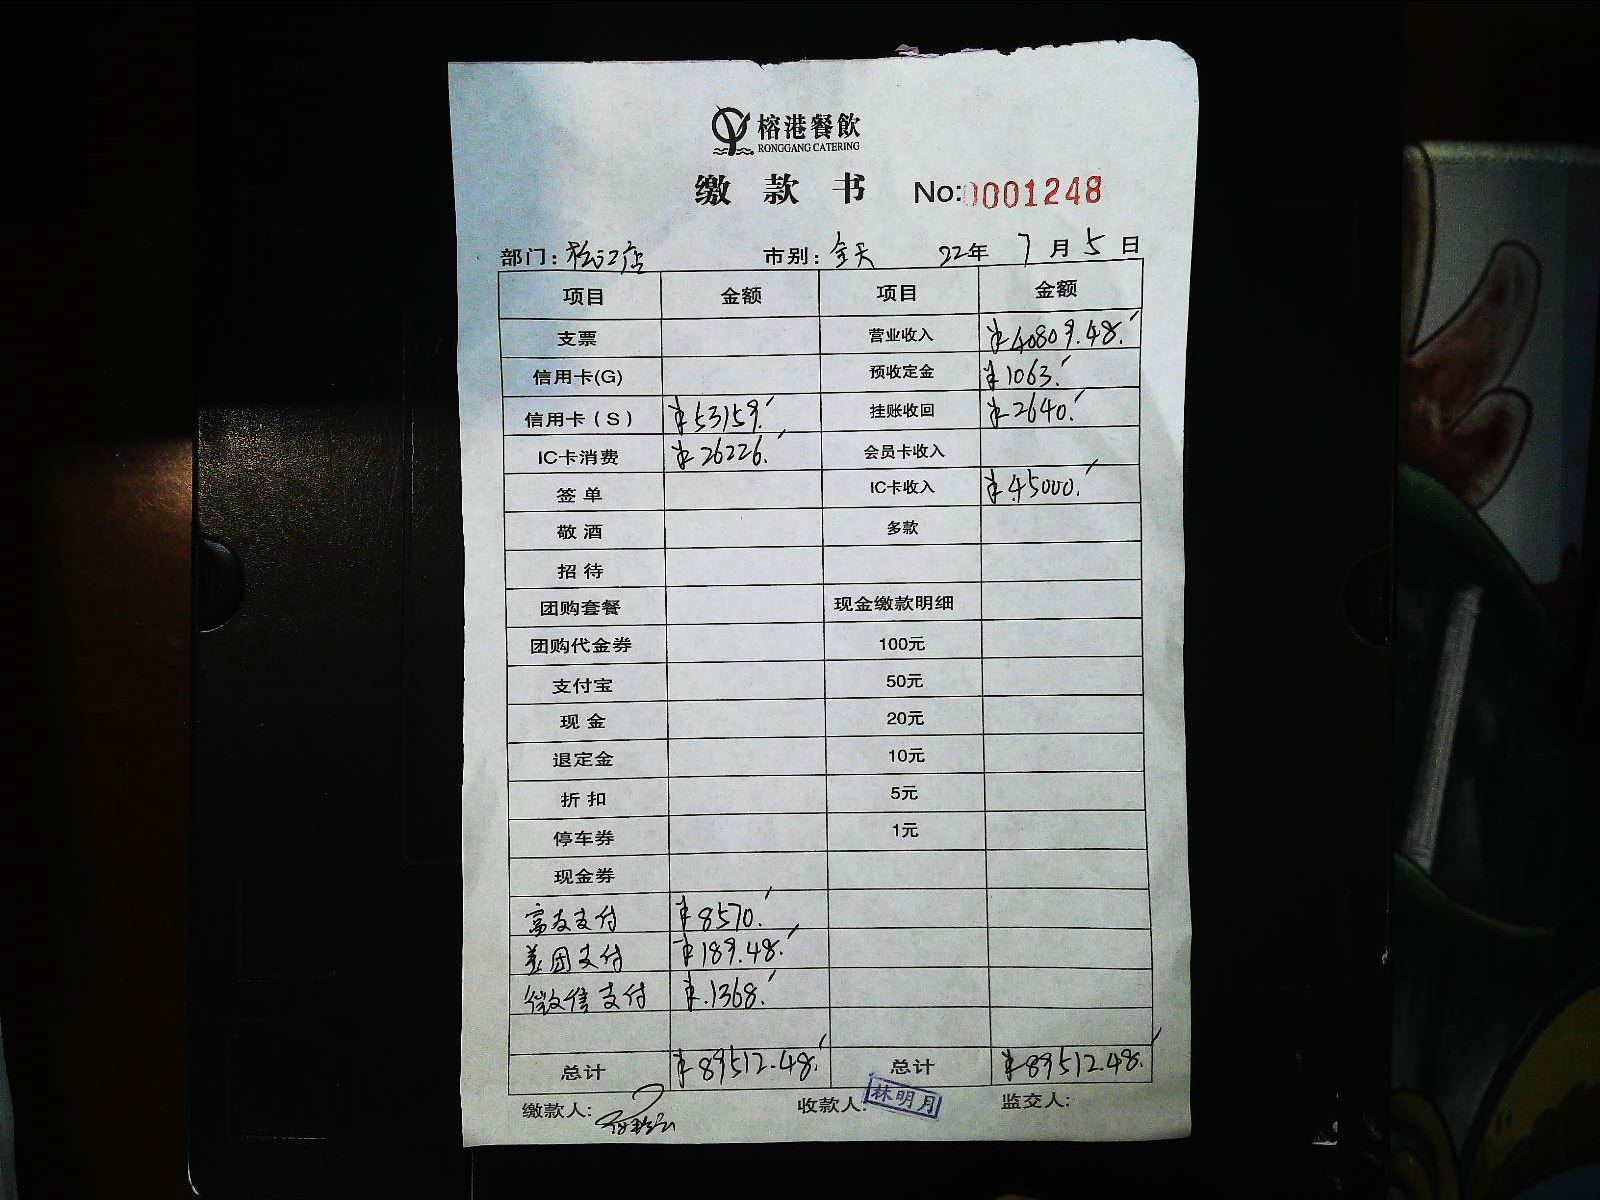 榕港餐飲
RONGGANG CATERING
缴款书 No:0001248
部门：松江店 市别：全天 22年 7月 5日
项目 金额 项目 金额
支票 营业收入 ¥40809.48.
信用卡(G) 预收定金 ¥1063.
信用卡（S） ¥53159. 挂账收回 ¥2640.
IC卡消费 ¥26226. 会员卡收入
签单 IC卡收入 ¥45000.
敬酒 多款
招待
团购套餐 现金缴款明细
团购代金券 100元
支付宝 50元
现金 20元
退定金 10元
折扣 5元
停车券 1元
现金券
富友支付 ¥8570.
美团支付 ¥189.48.
微信支付 ¥.1368.
总计 ¥89512.48. 总计 ¥89512.48.
缴款人: 收款人: 林明月 监交人: